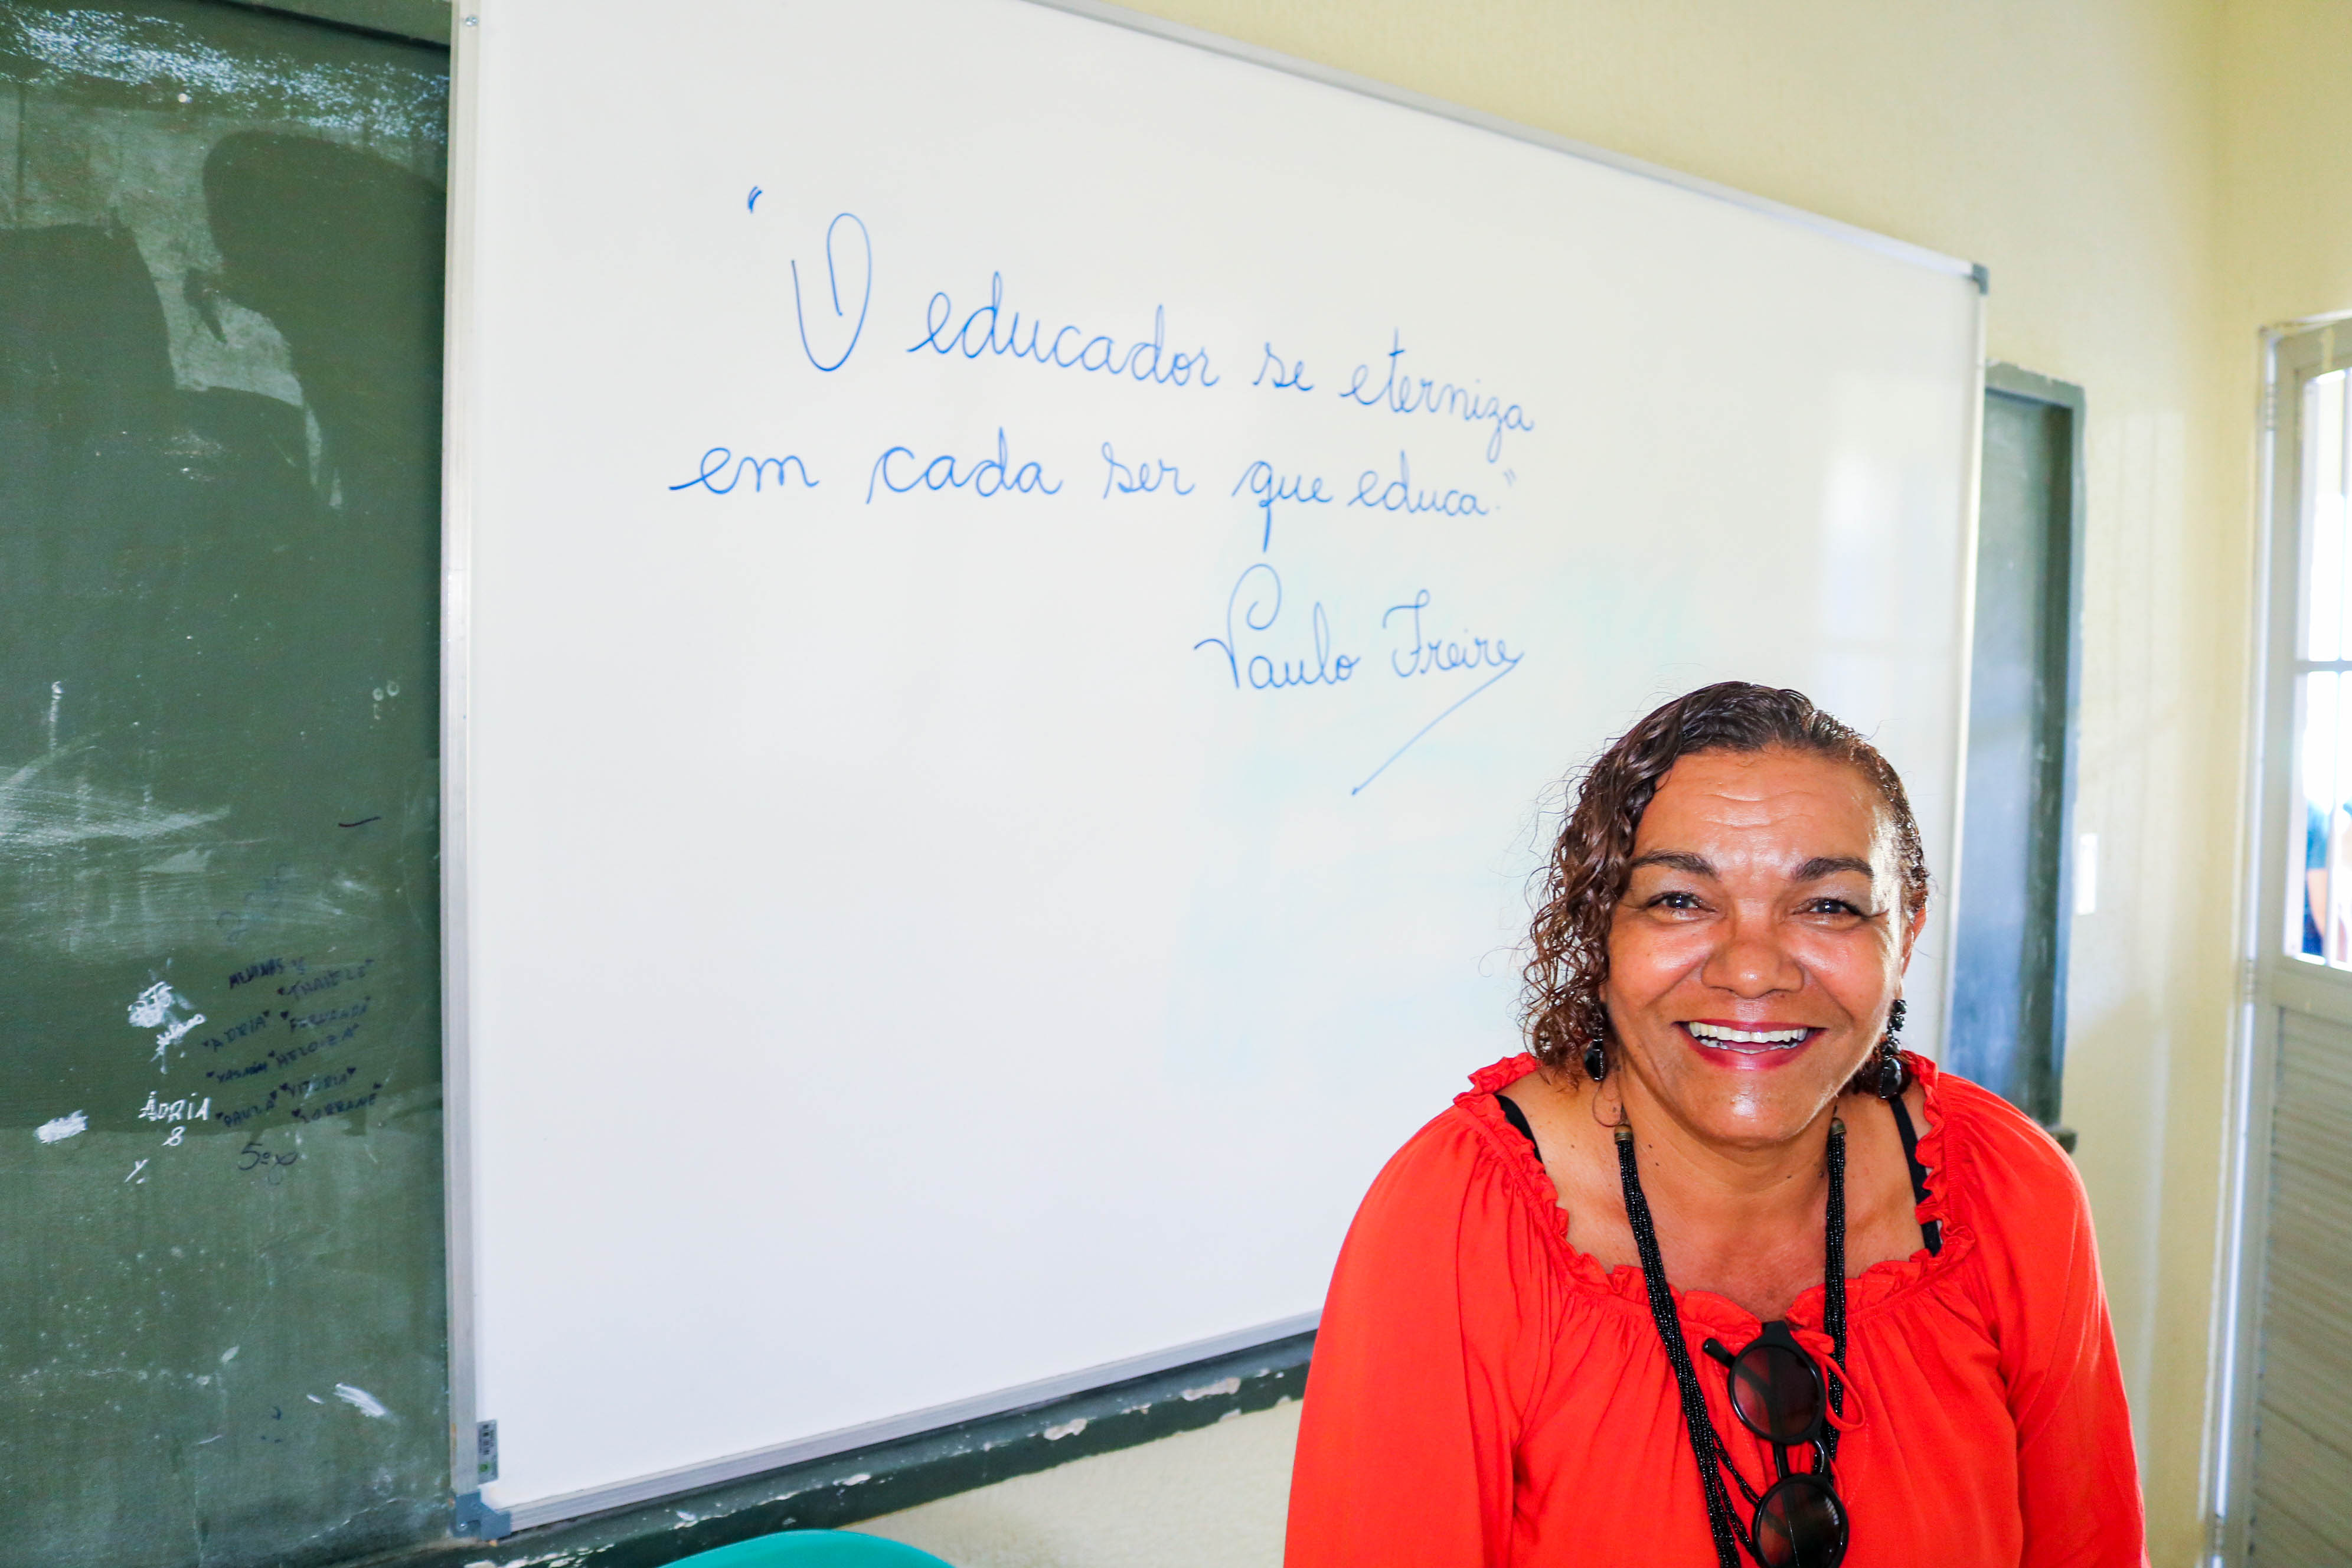 "O educador se eterniza
em cada ser que educa."
Paulo Freire
MENINAS
"THAIELE"
"ADRIA"
"YASMIM" "HELOIZA"
"PAULA" "VITORIA"
"LORRANE"
5º
ÁDRIA
8